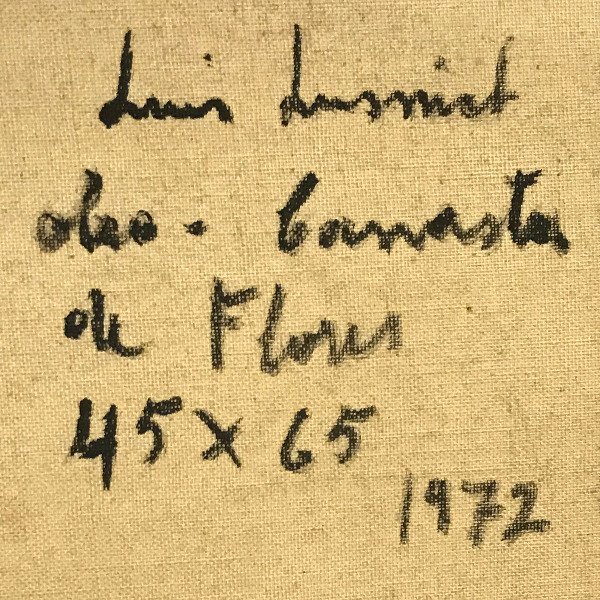 Luis
oleo - Canasta
de Flores
45 x 65
1972